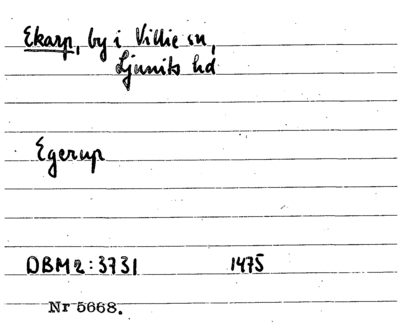 Ekarp, by i Villie sn,
Ljunits hd
Egerup
DBM2:3731 1475
Nr 5668.